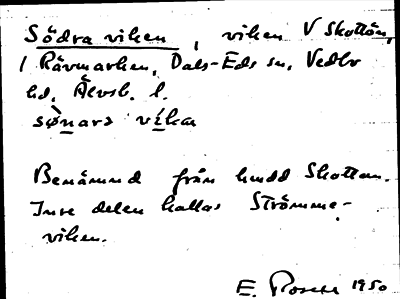 Södra viken, viken V Skottön,
i Rävmarken, Dals-Eds sn, Vedbo
hd, Älvsb. l.
sønara vika
Benämnd från hudd Skotten.
Inre delen kallas Strömme-
viken.
E. 1950